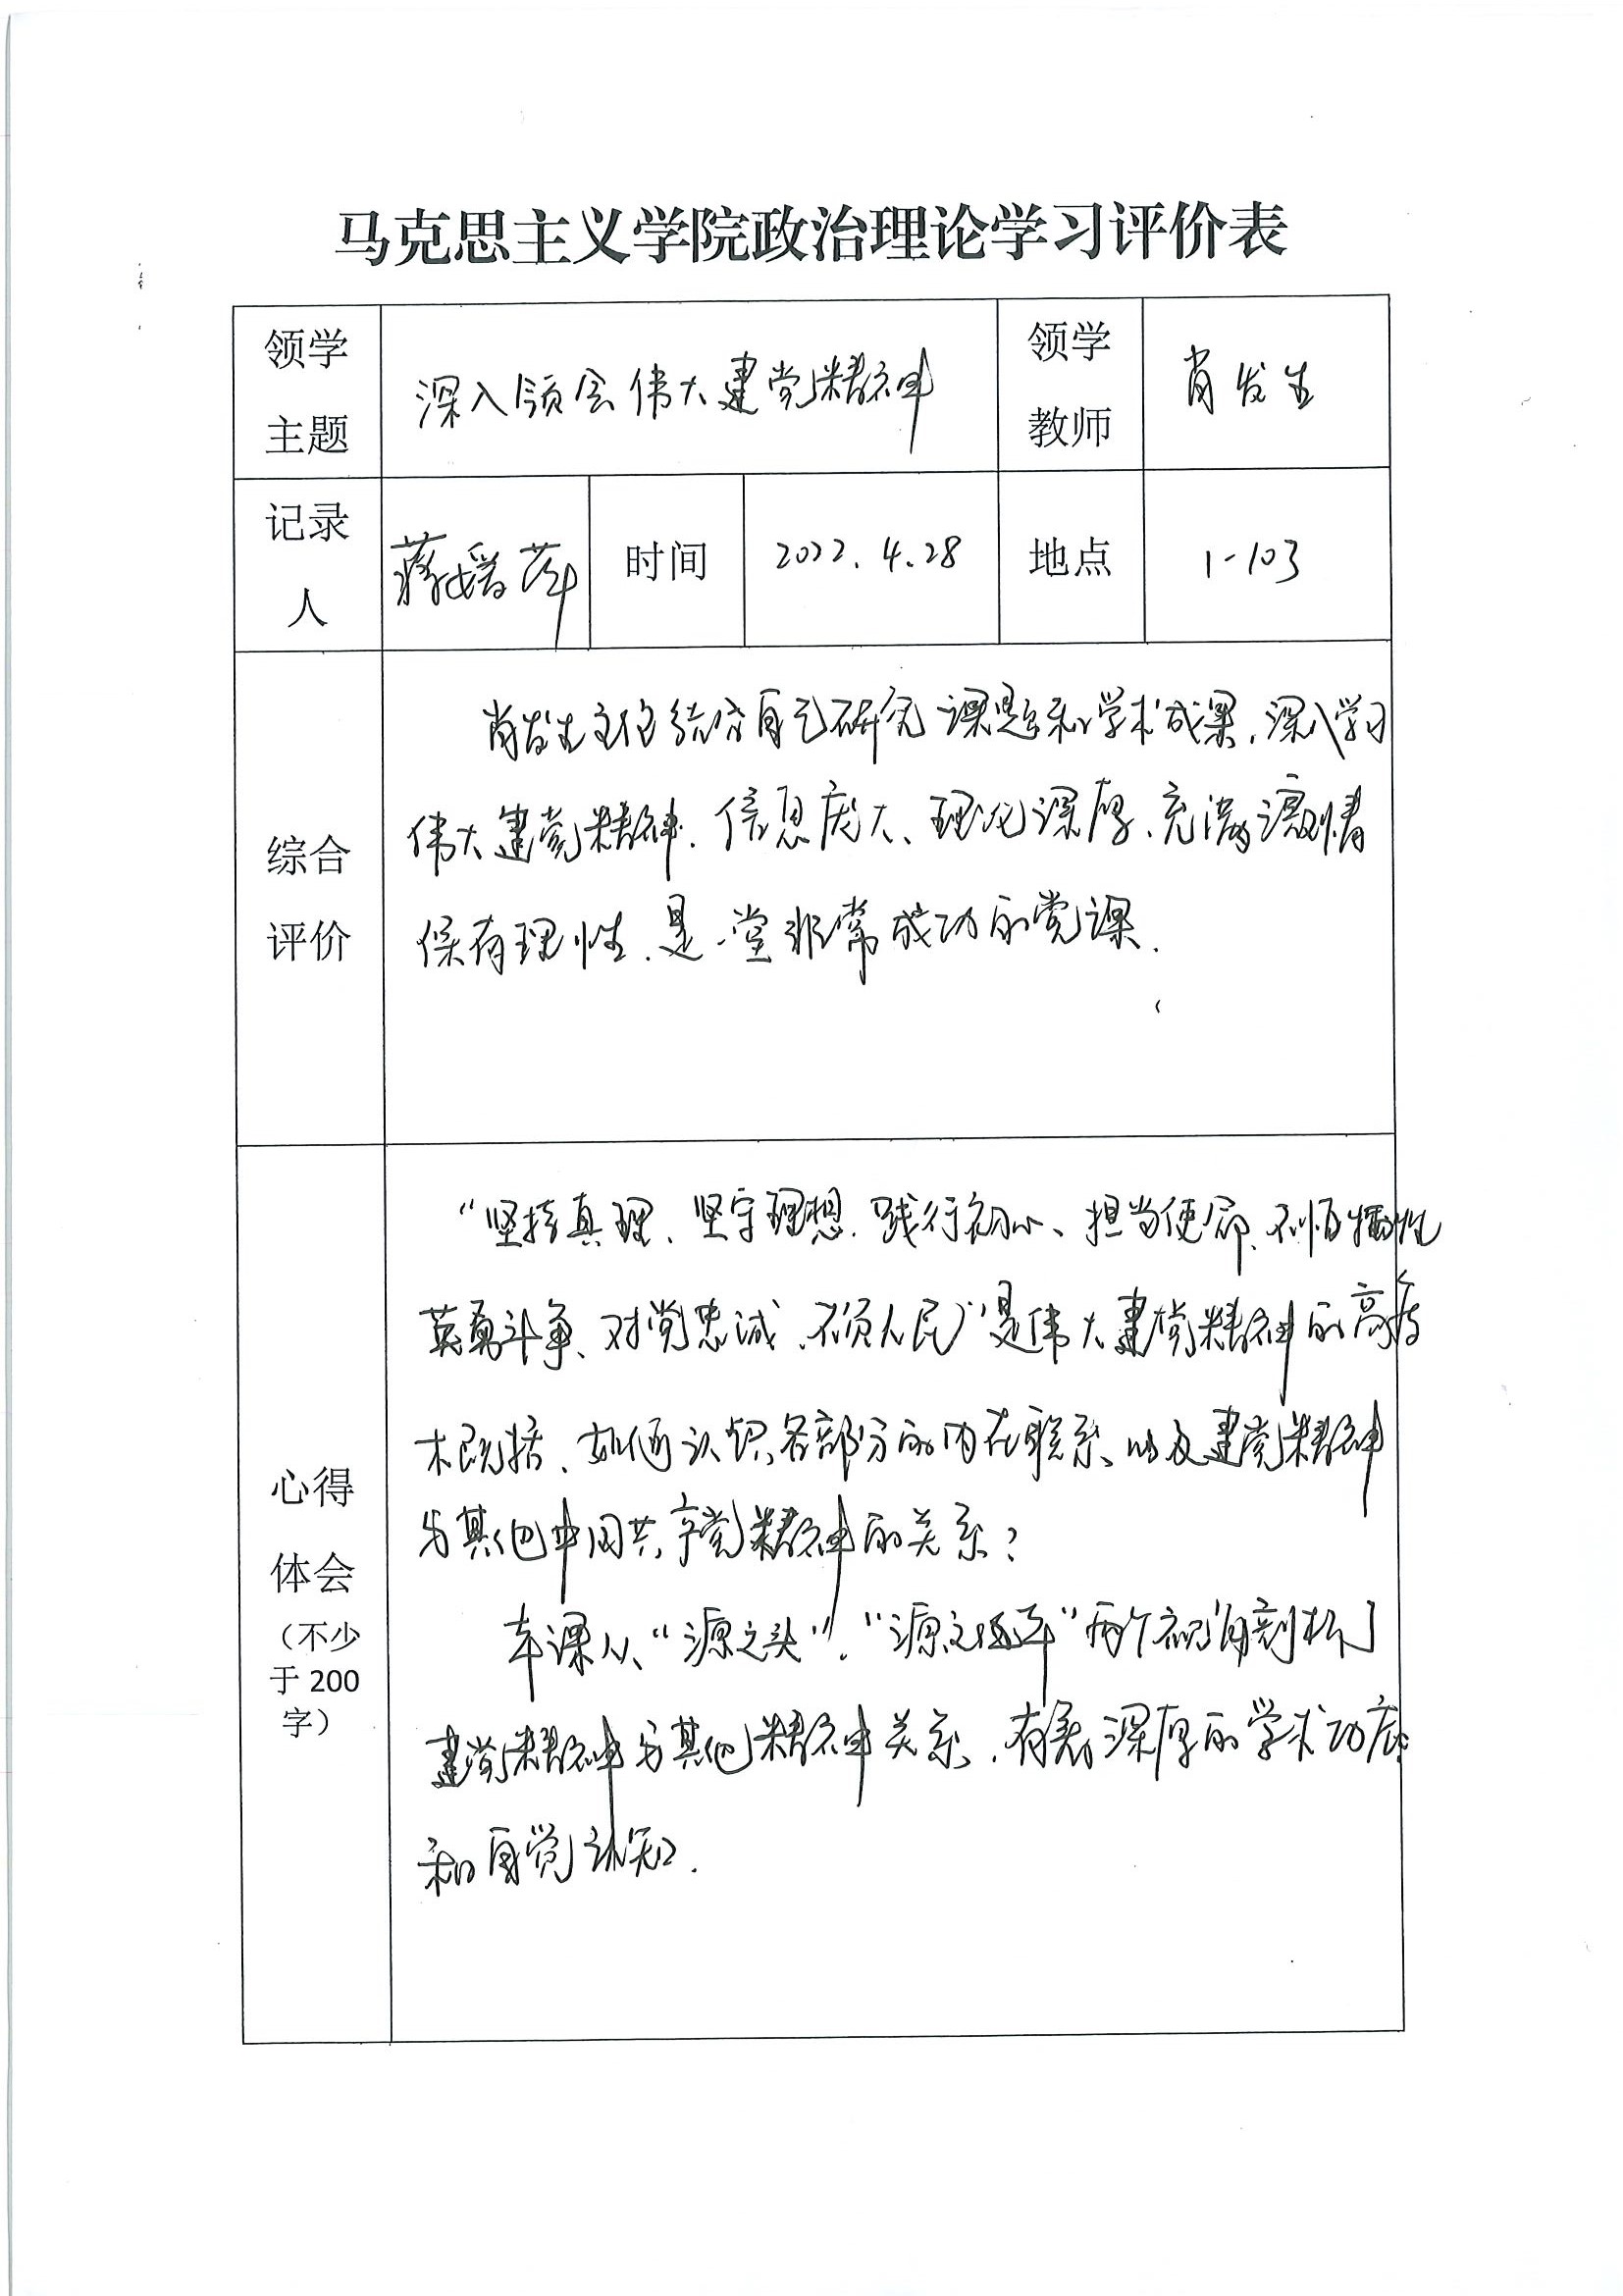 马克思主义学院政治理论学习评价表
领学
主题
深入领会伟大建党精神
领学
教师
肖发生
记录
人
蒋媛萍
时间
2022.4.28
地点
1-103
综合
评价
肖发生主任结合自己研究课题和学术成果,深入学习
伟大建党精神.信息庞大、理论深厚、充满激情
保有理性.是一堂非常成功的党课.
心得
体会
(不少
于 200
字)
“坚持真理、坚守理想.践行初心、担当使命、不怕牺牲
英勇斗争、对党忠诚、不负人民”是伟大建党精神的高度
概括、如何认识各部分的内在联系、以及建党精神
与其他中国共产党精神的关系?
本课从“源之头”.“源之”两个剖析了
建党精神与其他精神关系.有着深厚的学术功底
和自觉认知.